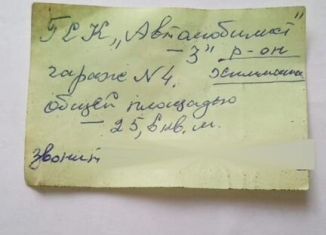 ГСК „Автомобилист
– 3" р-он
гараж № 4.
общей площадью
– 25,6 кв. м.
звонит